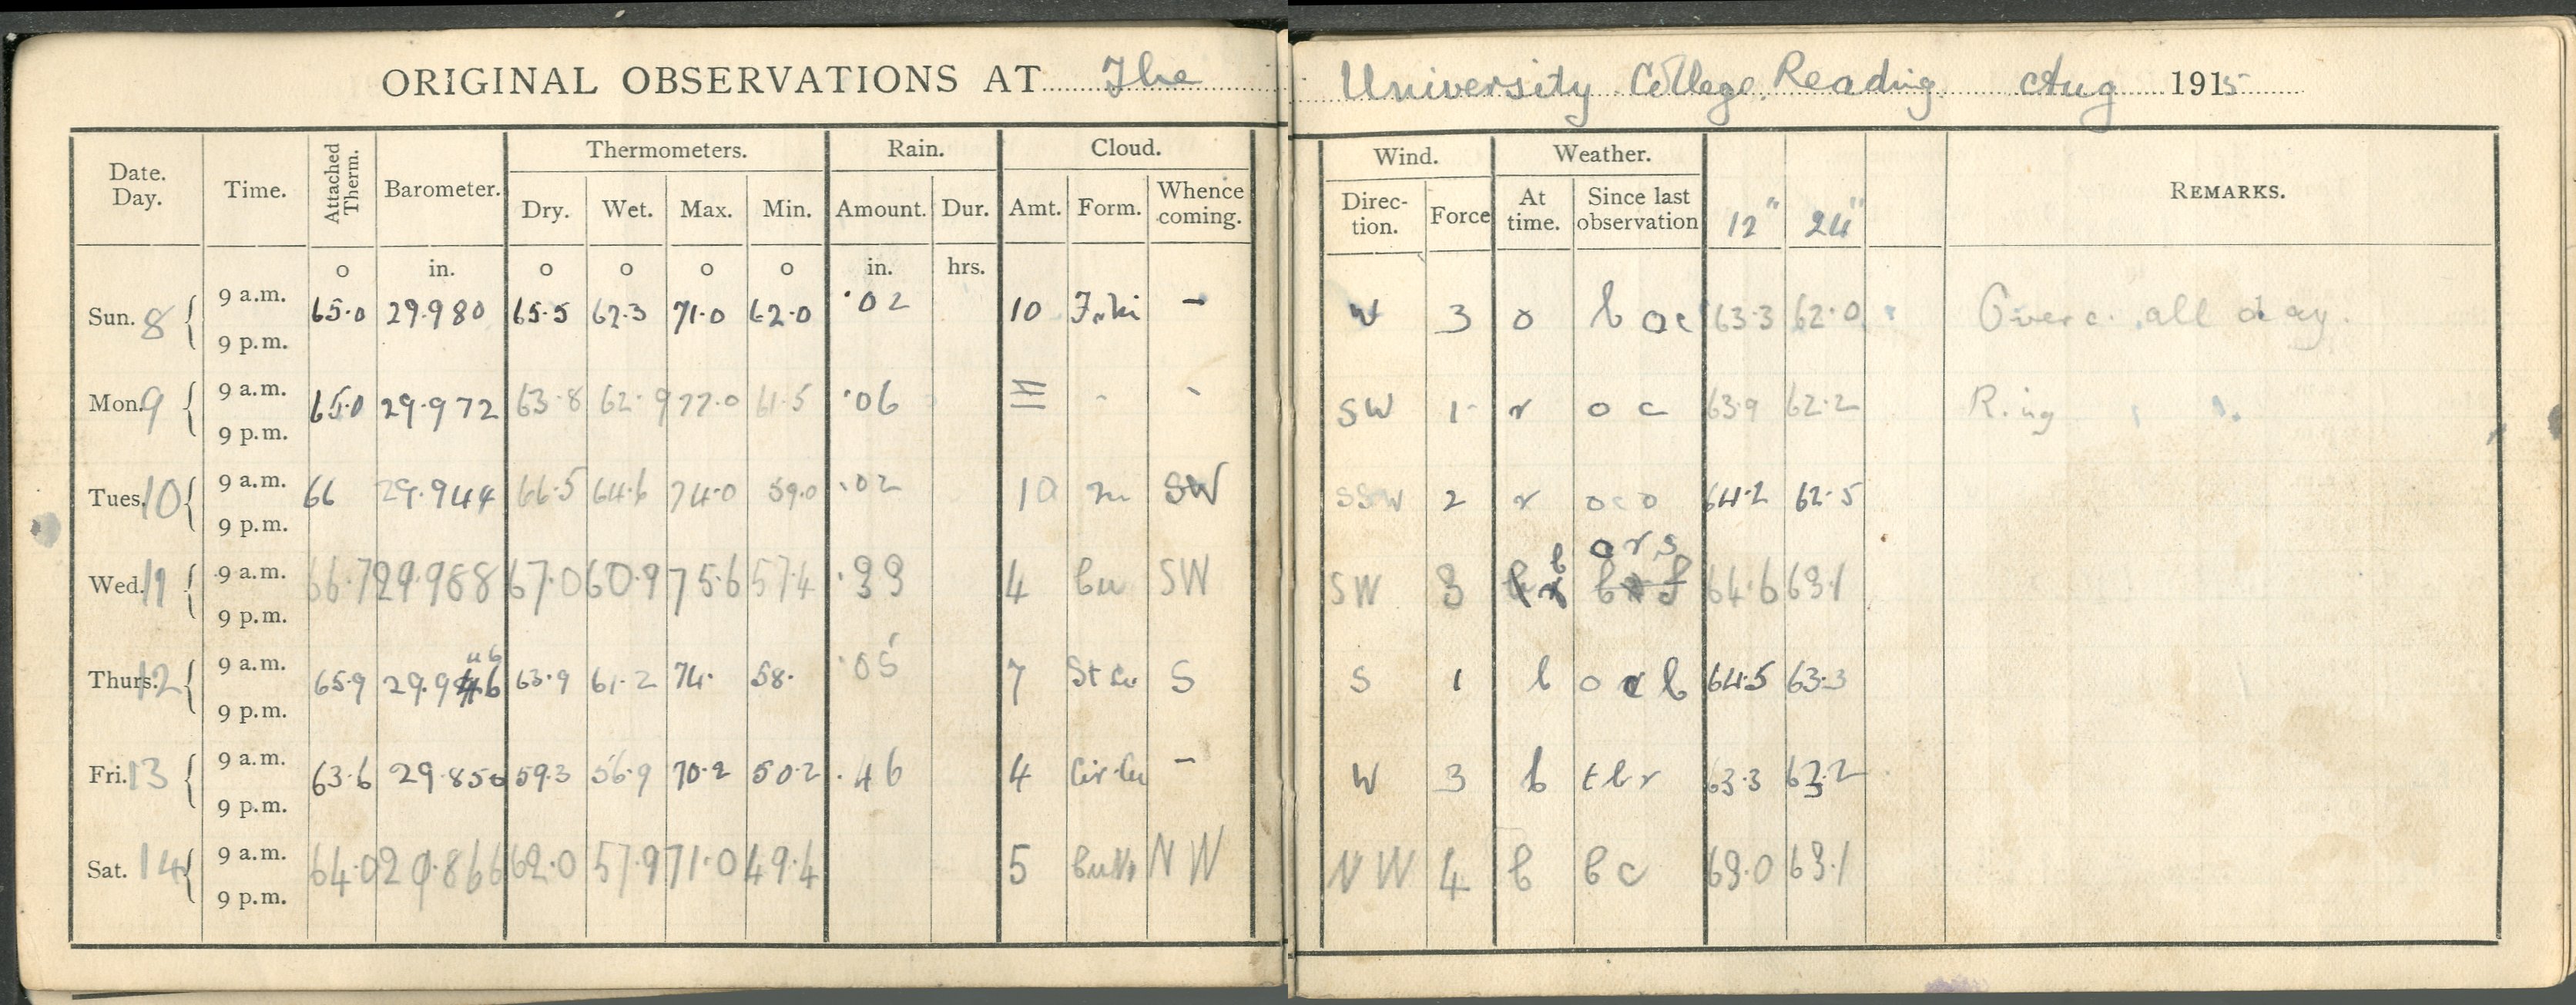 ORIGINAL OBSERVATIONS AT The University College Reading Aug 1915
Date. Day. Time. Attached Therm. Barometer. Thermometers. Rain. Cloud. Wind. Weather. REMARKS.
Dry. Wet. Max. Min. Amount. Dur. Amt. Form. Whence coming. Direction. Force At time. Since last observation 12" 24"
o in. o o o o in. hrs.
Sun. 8 9 a.m. 65.0 29.980 65.5 62.3 71.0 62.0 .02 10 - W 3 o b oc 63.3 62.0 Overc. all day.
9 p.m.
Mon. 9 9 a.m. 65.0 29.972 63.8 62.9 77.0 61.5 .06 ≡ - - SW 1 r o c 63.9 62.2
9 p.m.
Tues. 10 9 a.m. 66 29.944 66.5 64.6 74.0 59.0 .02 10 SW SSW 2 r oco 64.2 62.5
9 p.m.
ors
Wed. 11 9 a.m. 66.7 29.988 67.0 60.9 75.6 57.4 .33 4 Cu SW SW 3 b 64.6 63.1
9 p.m.
Thurs. 12 9 a.m. 65.9 29.9 46 63.9 61.2 74. 58. .05 7 St Cu S S 1 b o c b 64.5 63.3
9 p.m.
Fri. 13 9 a.m. 63.6 29.850 59.3 56.9 70.2 50.2 .46 4 Cir-Cu - W 3 b tlr 63.3 63.2
9 p.m.
Sat. 14 9 a.m. 64.0 29.866 62.0 57.9 71.0 49.4 5 NW NW 4 b bc 63.0 63.1
9 p.m.